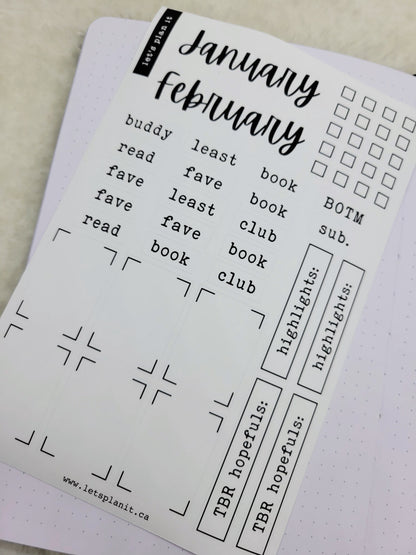 let's plan it
January
February
buddy
read
fave
fave
read
least
fave
least
fave
book
book
book
club
book
club
BOTM
sub.
highlights:
highlights:
TBR hopefuls:
TBR hopefuls:
www.letsplanit.ca